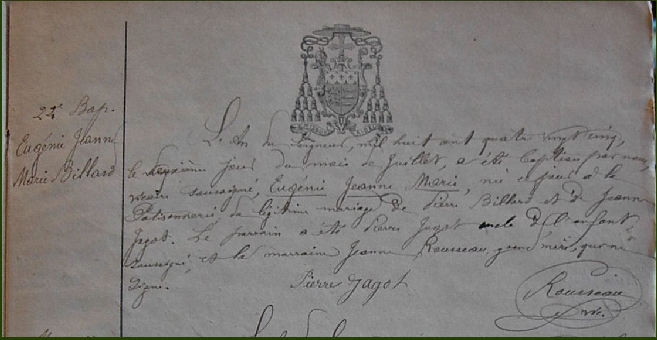 22e Bap.
Eugénie Jeanne
Marie Billard
L'An du Seigneur, mil huit cent quatre vingt cinq,
le deuxième jour du mois de Juillet, a été baptisée par nous,
vicaire soussigné, Eugénie Jeanne Marie, née ce jour à la
du légitime mariage de Pierre Billard et de Jeanne
Jagot. Le parrain a été Pierre Jagot oncle de l'enfant,
soussigné, et la marraine Jeanne Rousseau, grand'mère, qui ne
signe.
Pierre Jagot
Rousseau